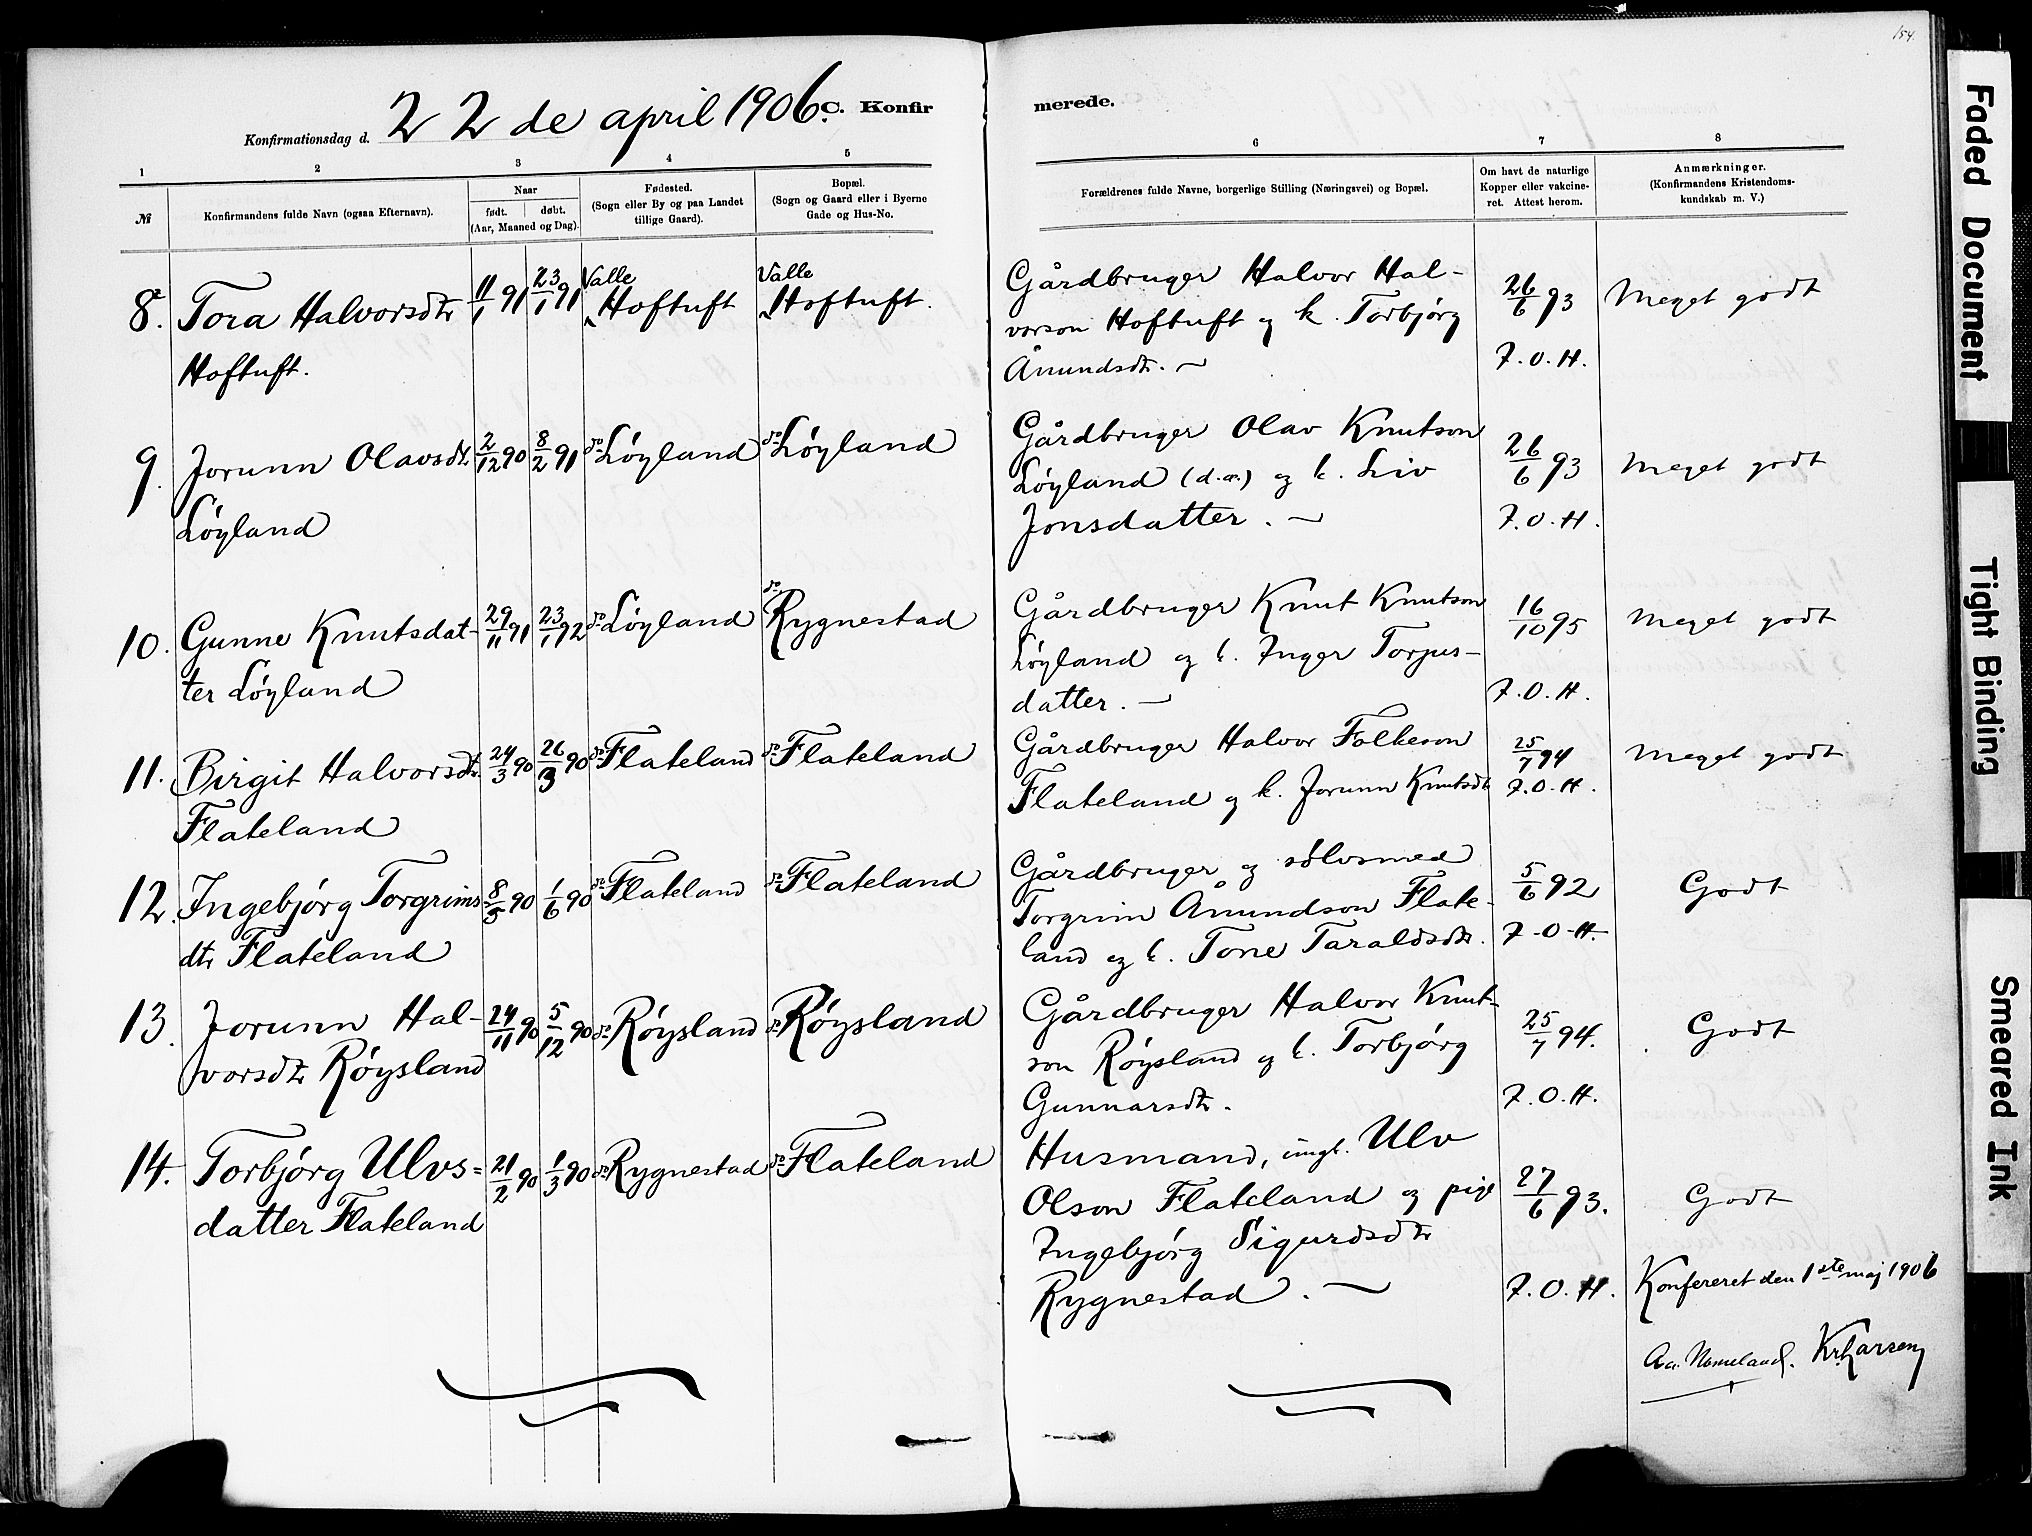 154.
22de april 1906. C. Konfir merede.
Konfirmationsdag d.
1 2 3 4 5 6 7 8
№
Konfirmandens fulde Navn (ogsaa Efternavn).
Naar
født. døbt.
(Aar, Maaned og Dag).
Fødested.
(Sogn eller By og paa Landet
tillige Gaard).
Bopæl.
(Sogn og Gaard eller i Byerne
Gade og Hus-No.
Forældrenes fulde Navne, borgerlige Stilling (Næringsvei) og Bopæl.
Om havt de naturlige
Kopper eller vakcine-
ret. Attest herom.
Anmærkninger.
(Konfirmandens Kristendoms-
kundskab m. V.)
8. Tora Halvorsdtr 11/1 91 23/1 91 Valle Hoftuft Valle Hoftuft.
Hoftuft.
Gårdbruger Halvor Hal-
vorson Hoftuft og k. Torbjørg
Ånundsdtr. —
26/6 93
F. O. H.
Meget godt
9. Jorunn Olavsdtr 2/12 90 8/2 91 do Løyland do Løyland
Løyland
Gårdbruger Olav Knutson
Løyland (d.æ.) og k. Liv
Jonsdatter. —
26/6 93
F. O. H.
Meget godt
10. Gunne Knutsdat- 29/11 91 23/1 92 do Løyland do Rygnestad
ter Løyland
Gårdbruger Knut Knutson
Løyland og k. Inger Torjus-
datter. —
16/10 95
F. O. H.
Meget godt
11. Birgit Halvorsdtr. 24/3 90 26/3 90 do Flateland do Flateland
Flateland
Gårdbruger Halvor Folkeson
Flateland og k. Jorunn Knutsdtr
25/7 94
F. O. H.
Meget godt
12. Ingebjørg Torgrims 8/5 90 1/6 90 do Flateland do Flateland
dtr Flateland
Gårdbruger og sølvsmed
Torgrim Ånundson Flate-
land og k. Tone Taraldsdtr.
5/6 92
F. O. H.
Godt
13. Jorunn Hal- 24/11 90 5/12 90 do Røysland do Røysland
vorsdtr Røysland
Gårdbruger Halvor Knut-
son Røysland og k. Torbjørg
Gunnarsdtr.
25/7 94.
F. O. H.
Godt
14. Torbjørg Ulvs= 21/2 90 1/3 90 do Rygnestad do Flateland
datter Flateland
Husmand, ungk. Ulv
Olson Flateland og pige
Ingebjørg Sigurdsdtr
Rygnestad. —
27/6 93.
F. O. H.
Godt
Konfereret den 1ste maj 1906
Aa. Nomeland. Kr. Larsen
Faded Document
Tight Binding
Smeared Ink